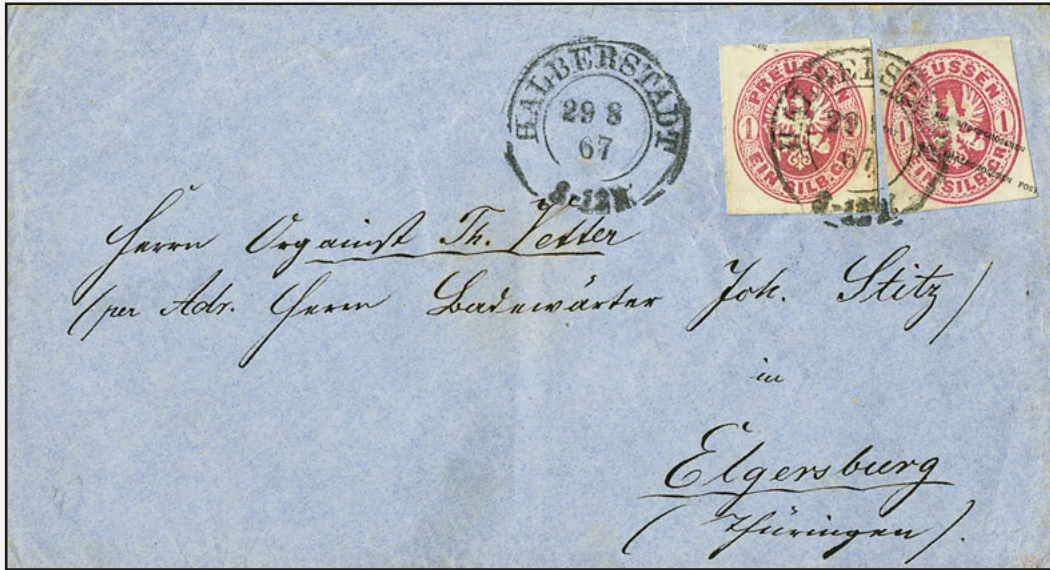 HALBERSTADT
29 8
67
8-12V.
PREUSSEN
1 1
EIN SILB.GR.
PREUSSEN
1 1
EIN SILB.GR.
HALBERSTADT
29
67
8-12V.
POST
Herrn Orgainst Th. Vetter
(per Adr. Herrn Badewärter Joh. Stitz)
in
Elgersburg
(Thüringen).